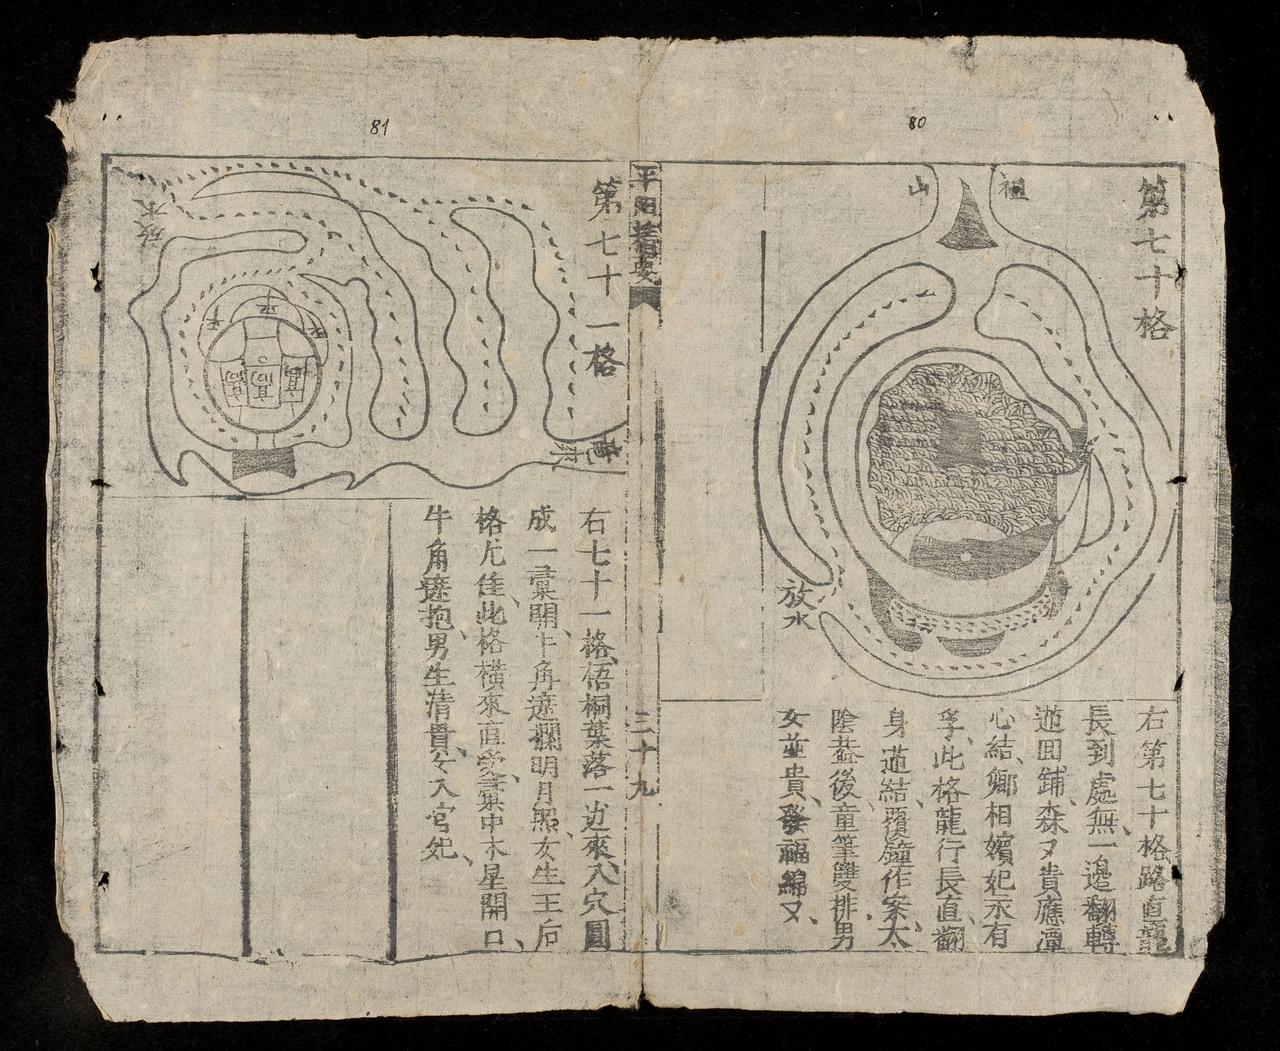 80
第七十格
祖
山
放水
右第七十格路直龍
長到處無一邉翻轉
遊囬鋪森又貴應潭
心結卿相嬪妃永有
孚此格龍行長直翻
身蓮結覆鐘作案太
陰蓋後童筆雙排男
女並貴發福綿又
平田
三十九
81
第七十一格
來
放水
平
平
平
高
高
高
右七十一格梧桐葉落一边來入穴圓
成一窠開牛角遮攔明月照女生王后
格尤佳此格橫來直受窠中木星開口
牛角遮抱男生清貴女入宮妃